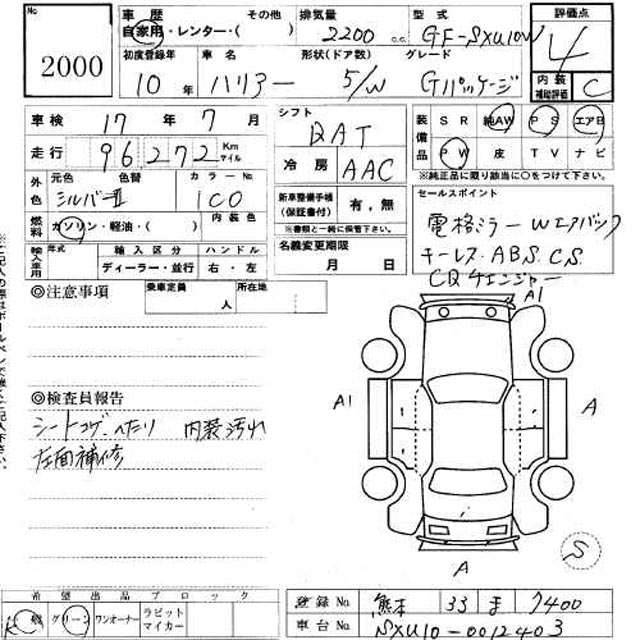 No.
2000
車歴
その他
自家用・レンター・( )
排気量
2200 c.c.
型式
GF-SXU10W
評価点
4
初度登録年
10年
車名
ハリアー
形状(ドア数)
5/W
グレード
Gパッケージ
内装
補助評価
C
車検 17年 7月
走行 96,272 Km マイル
シフト
冷房
AAC
装備品
SR 純AW PS エアB
PW 皮 TV ナビ
※純正品に限り該当に○をつけて下さい。
外色
元色 色替
シルバーⅡ
カラーNo.
1C0
内装色
燃料
ガソリン・軽油・( )
新車整備手帳
(保証書付)
有・無
※書類と一緒に保管下さい。
セールスポイント
電格ミラー Wエアバック
キーレス・ABS. C.S.
CDチェンジャー
輸入車用
年式
輸入区分
ディーラー・並行
ハンドル
右・左
名義変更期限
月 日
◎注意事項
乗車定員
人
所在地
A1
A1
A
A
S
◎検査員報告
シートコゲ、ヘたり 内装汚れ
左面補修
希望出品ブロック
グリーン
ワンオーナー
ラビットマイカー
登録No. 熊本 33 ま 7400
車台No. SXU10-0012403